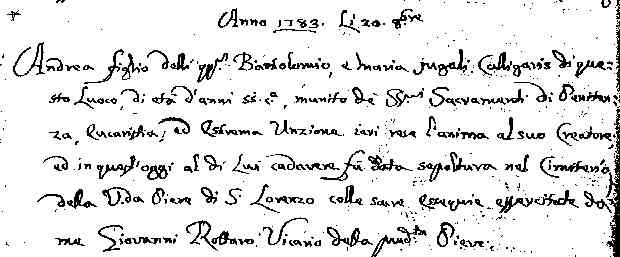 Anno 1783. Li 20. 8bre
Andrea figlio delli qq.m Bartolomio, e Maria jugali Calligaris di que=
sto Luoco, di età d'anni 55. c.a, munito de SS.mi Sacramenti di Peniten=
za, Eucaristia, ed Estrema Unzione ieri rese l'anima al suo Creatore,
ed in quest'oggi al di Lui cadavere fù data sepoltura nel Cimiterio
della V.da Pieve di S. Lorenzo colle sacre esequie essercitate da
me Giovanni Rottaro Vicario della pred.ta Pieve.